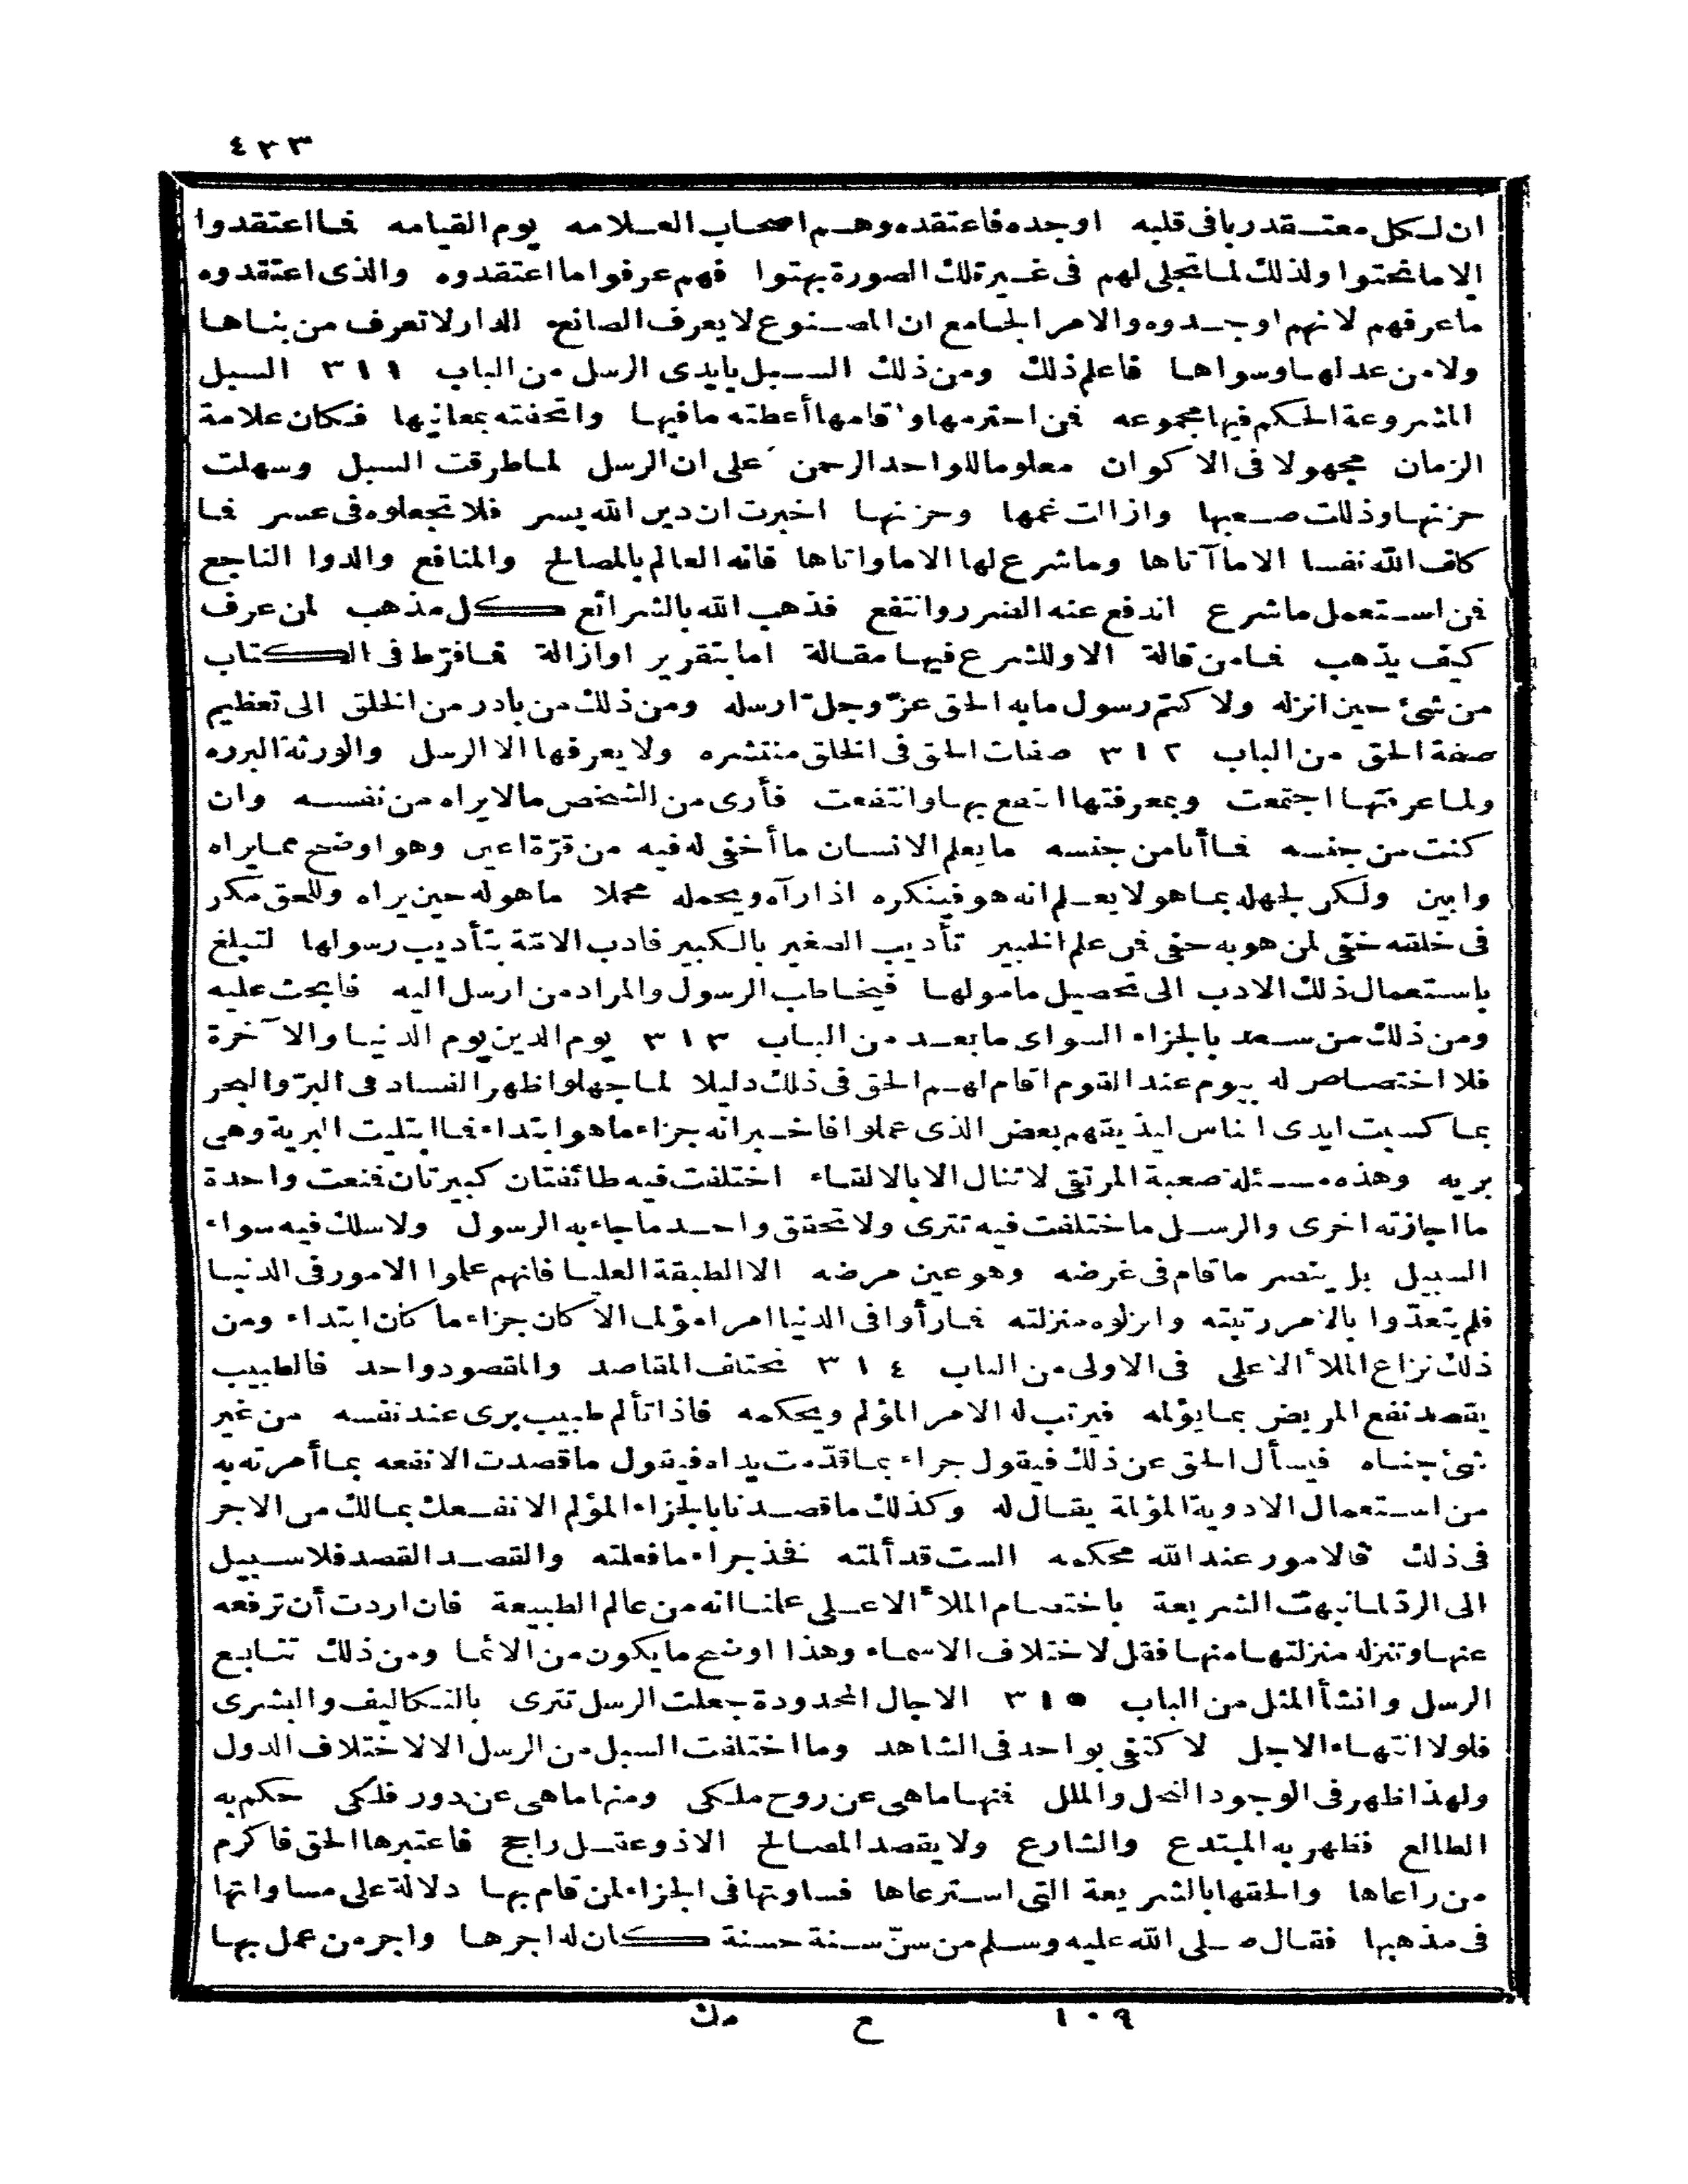 ٤٣٣
ان لكل معتقد ربا فى قلبه اوجده فاعتقده وهم اصحاب العلامه يوم القيامه فما اعتقدوا
الا ما نحتوا ولذلك لما تجلى لهم فى غير تلك الصورة بهتوا فهم عرفوا ما اعتقدوه والذى اعتقدوه
ما عرفهم لانهم اوجدوه والامر الجامع ان المصنوع لا يعرف الصانع الدار لا تعرف من بناها
ولا من عدلها وسواها فاعلم ذلك ومن ذلك السبل بايدى الرسل من الباب ٣١١ السبل
المشروعة الحكم فيها مجموعه فمن احترمها واقامها أعطته ما فيها واتحفته بمعانيها فكان علامة
الزمان مجهولا فى الاكوان معلوما للواحد الرحمن على ان الرسل لما طرقت السبل وسهلت
حزنها وذللت صعبها وازالت غمها وحزنها اخبرت ان دين الله يسر فلا تجعلوه فى عسر فما
كلف الله نفسا الا ما آتاها وما شرع لها الا ما واتاها فانه العالم بالمصالح والمنافع والدوا الناجع
فمن استعمل ما شرع اندفع عنه الضرر وانتفع فذهب الله بالشرائع كل مذهب لمن عرف
كيف يذهب فما من قالة الا وللشرع فيها مقالة اما بتقرير او ازالة فما فرّط فى الكتاب
من شئ حين انزله ولا كتم رسول ما به الحق عزّ وجلّ ارسله ومن ذلك من بادر من الخلق الى تعظيم
صفة الحق من الباب ٣١٢ صفات الحق فى الخلق منتشره ولا يعرفها الا الرسل والورثة البرره
ولما عرفتها اجتمعت وبمعرفتها انتفع بها وانتفعت فأرى من الشخص ما لا يراه من نفسه وان
كنت من جنسه فما أنا من جنسه ما يعلم الانسان ما أخفى له فيه من قرّة اعين وهو اوضح مما يراه
وابين ولكن لجهله بما هو لا يعلم انه هو فينكره اذا رآه ويحمله محملا ما هو له حين يراه وللحق مكر
فى خلقه خفى لمن هو به حفى فمن علم الخبير تأديب الصغير بالكبير فادب الامّة بتأديب رسولها لتبلغ
باستعمال ذلك الادب الى تحصيل مامولها فيخاطب الرسول والمراد من ارسل اليه فابحث عليه
ومن ذلك من سعد بالجزاء السواى ما بعد من الباب ٣١٣ يوم الدين يوم الدنيا والآخرة
فلا اختصاص له بيوم عند القوم اقام لهم الحق فى ذلك دليلا لما جهلوا ظهر الفساد فى البرّ والبحر
بما كسبت ايدى الناس ليذيقهم بعض الذى عملوا فاخبر انه جزاء ما هو ابتداء فما ابتليت البرية وهى
بريه وهذه مسئلة صعبة المرتقى لا تنال الا بالالقاء اختلفت فيه طائفتان كبيرتان فمنعت واحدة
ما اجازته اخرى والرسل ما ختلفت فيه تترى ولا تحقق واحد ما جاء به الرسول ولا سلك فيه سواء
السبيل بل ينصر ما قام فى غرضه وهو عين مرضه الا الطبقة العليا فانهم علموا الامور فى الدنيا
فلم يتعدّوا بالامر رتبته وانزلوه منزلته فما رأوا فى الدنيا امرا مؤلما الا كان جزاء ما كان ابتداء ومن
ذلك نزاع الملأ الاعلى فى الاولى من الباب ٣١٤ تختلف المقاصد والمقصود واحد فالطبيب
يقصد نفع المريض بما يؤلمه فيرتب له الامر المؤلم ويحكمه فاذا تألم طبيب برى عند نفسه من غير
شئ جناه فيسأل الحق عن ذلك فيقول جزاء بما قدّمت يداه فيقول ما قصدت الا نفعه بما أمرته به
من استعمال الادوية المؤلمة يقال له وكذلك ما قصدنا بالجزاء المؤلم الا نفعك بمالك من الاجر
فى ذلك فالامور عند الله محكمه الست قد ألمته فخذ جزاء ما فعلته والقصد القصد فلا سبيل
الى الردّ لما نبهت الشريعة باختصام الملأ الاعلى علمنا انه من عالم الطبيعة فان اردت أن ترفعه
عنها وتنزله منزلتها منها فقل لاختلاف الاسماء وهذا اوضح ما يكون من الانما ومن ذلك تتابع
الرسل وانشأ المثل من الباب ٣١٥ الاجال المحدودة جعلت الرسل تترى بالتكاليف والبشرى
فلولا انتهاء الاجل لا كتفى بواحد فى الشاهد وما اختلفت السبل من الرسل الا لاختلاف الدول
ولهذا ظهر فى الوجود النحل والملل فمنها ما هى عن روح ملكى ومنها ما هى عن دور فلكى حكم به
الطالع فظهر به المبتدع والشارع ولا يقصد المصالح الا ذو عقل راجح فاعتبرها الحق فاكرم
من راعاها والحقها بالشريعة التى استرعاها فساوتها فى الجزاء لمن قام بها دلالة على مساواتها
فى مذهبها فقال صلى الله عليه وسلم من سنّ سنة حسنة كان له اجرها واجر من عمل بها
١٠٩ ح مك